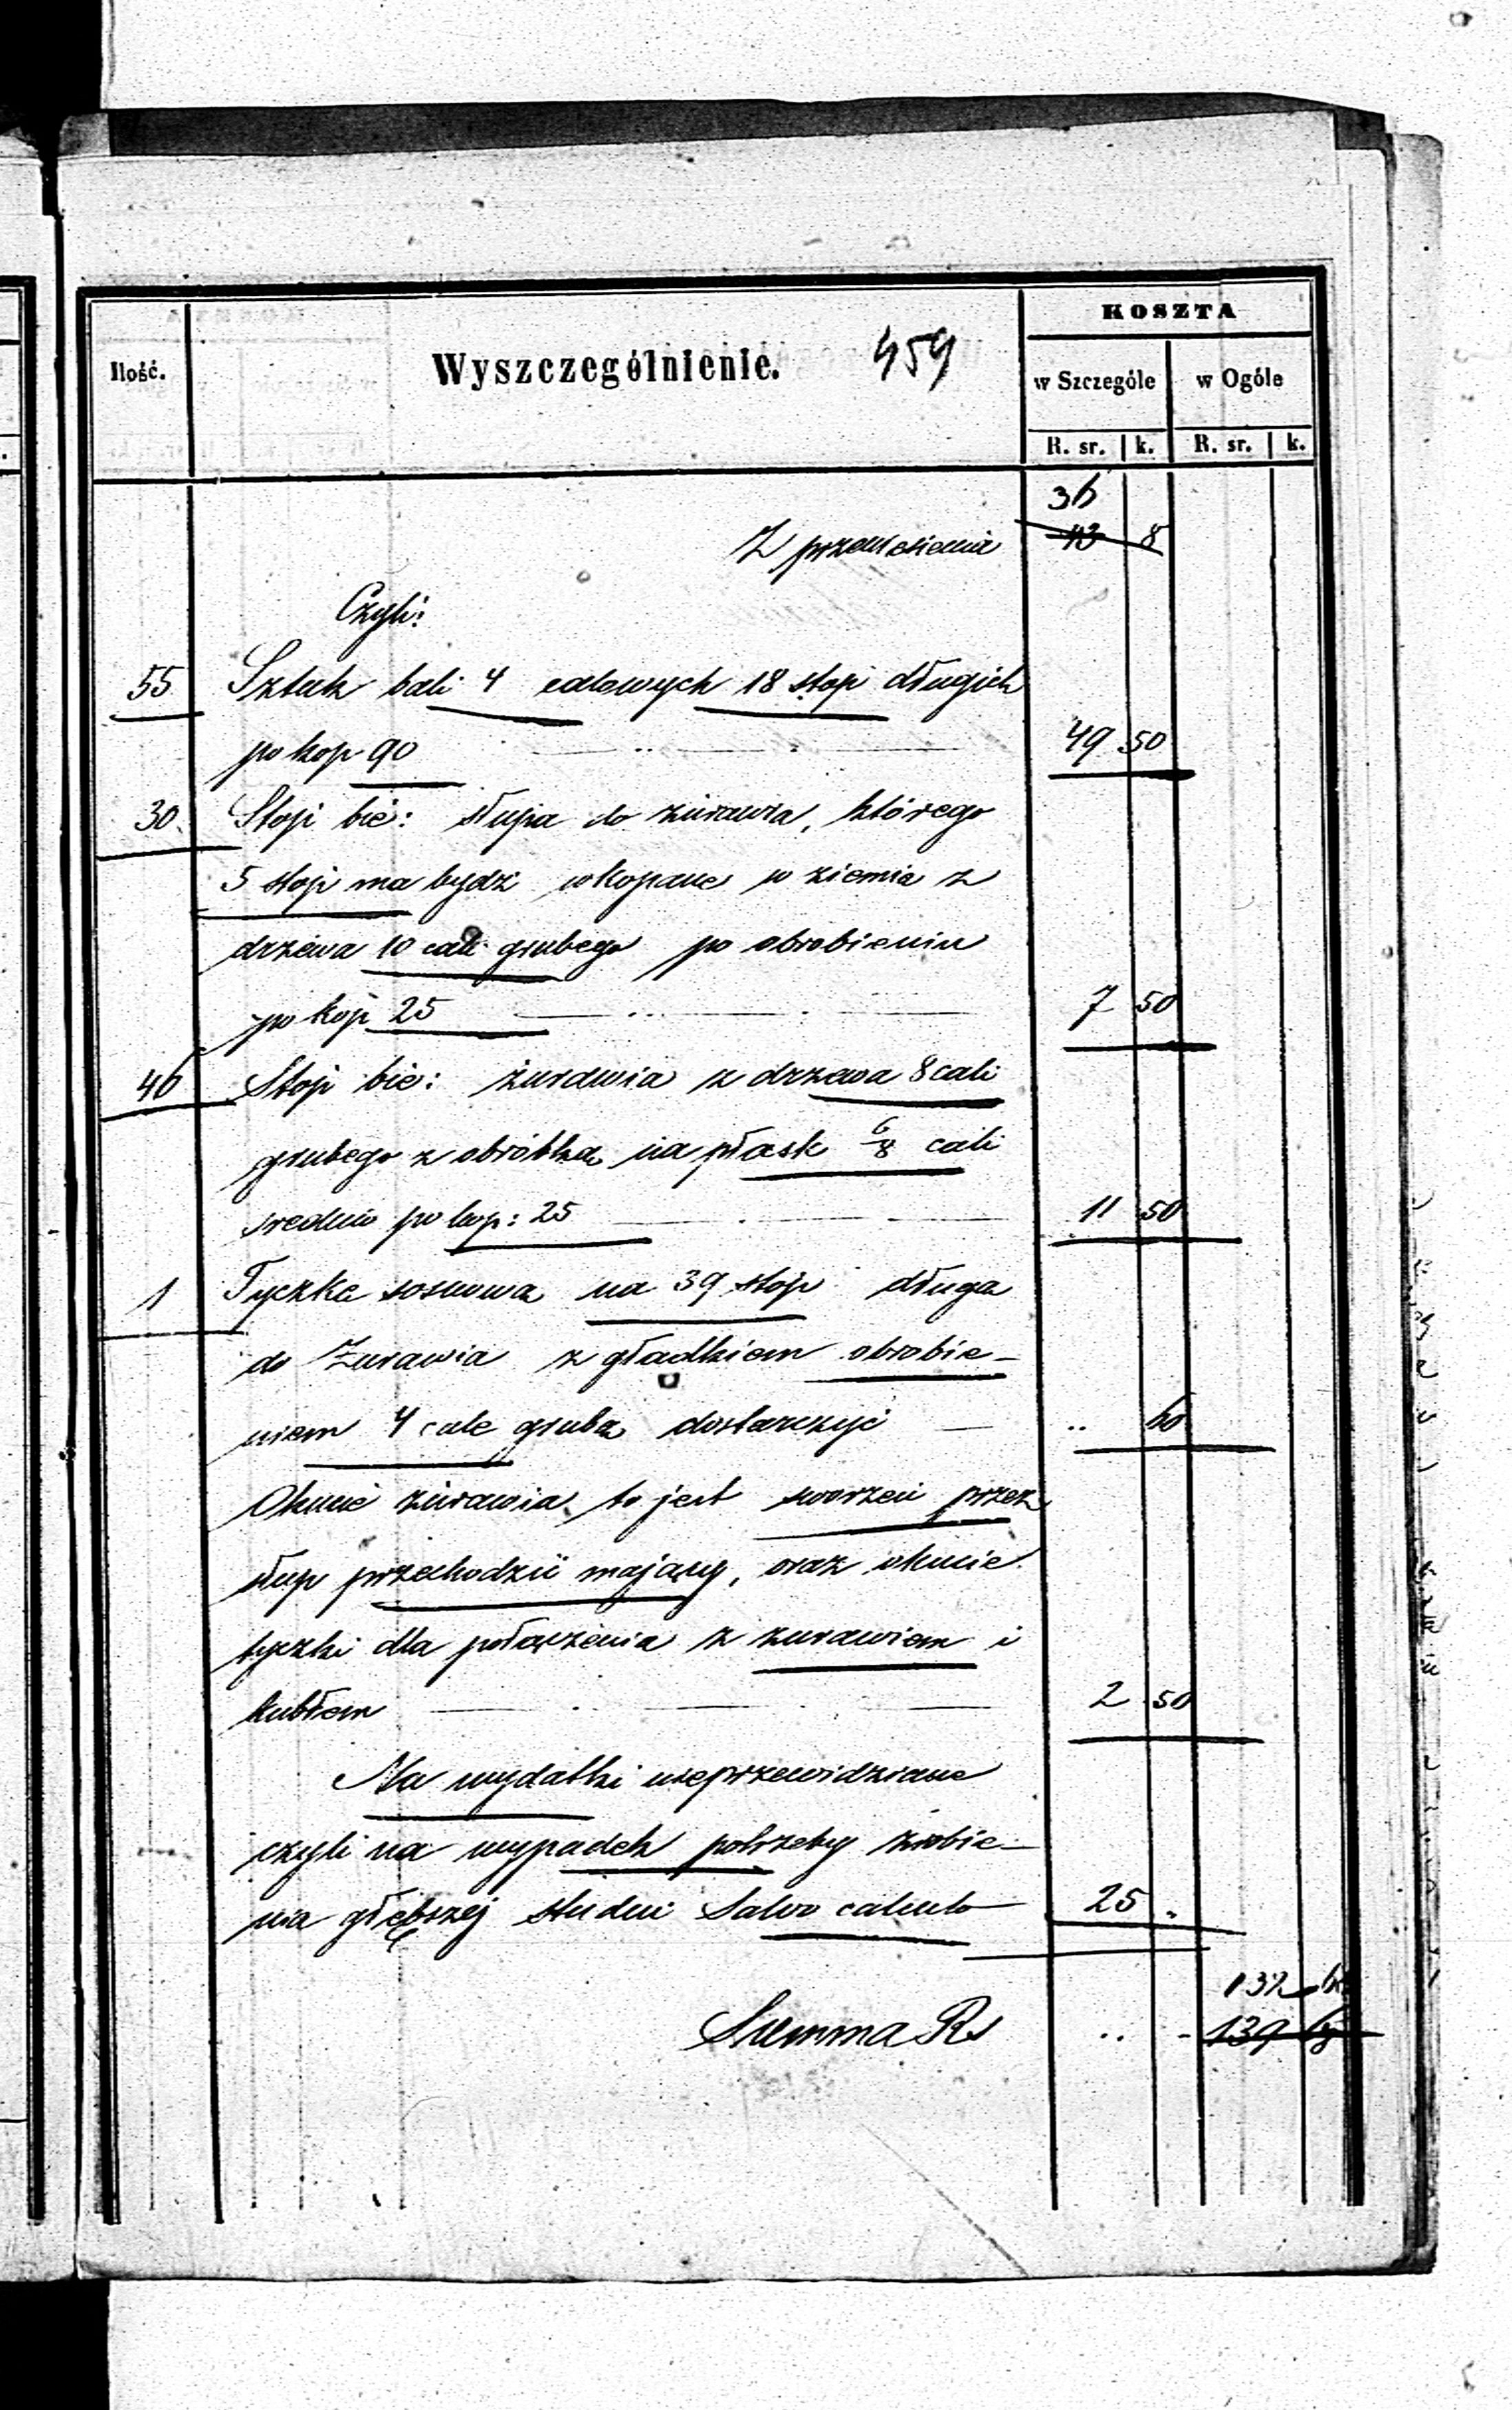 KOSZTA
Ilość. Wyszczególnienie. 459 w Szczególe w Ogóle
R. sr. k. R. sr. k.
36
Z przeniesienia 43 8
Czyli:
55 Sztuk bali 4 calowych 18 stop długich
po kop 90 49 50
30 Stop bie: słupa do żurawia, którego
5 stop ma bydź wkopane w ziemia z
drzewa 10 cali grubego po obrobieniu
po kop 25 7 50
46 Stop bie: żurawia z drzewa 8 cali
grubego z obróbką na płask 6/8 cali
srednio po kop: 25 11 50
1 Tyczka sosnowa na 39 stop długa
do Zurawia z gładkiem obrobie-
niem 4 cale gruba dostarczyć .. 60
Okucie żurawia to jest sworzeń przez
słup przechodzić mający, oraz okucie
tyczki dla połączenia z żurawiem i
kubłem 2 50
Na wydatki nieprzewidziane
czyli na wypadek potrzeby zrobie-
nia głębszej studni Salvo calculo 25 .
132
Summa Rs .. - 139